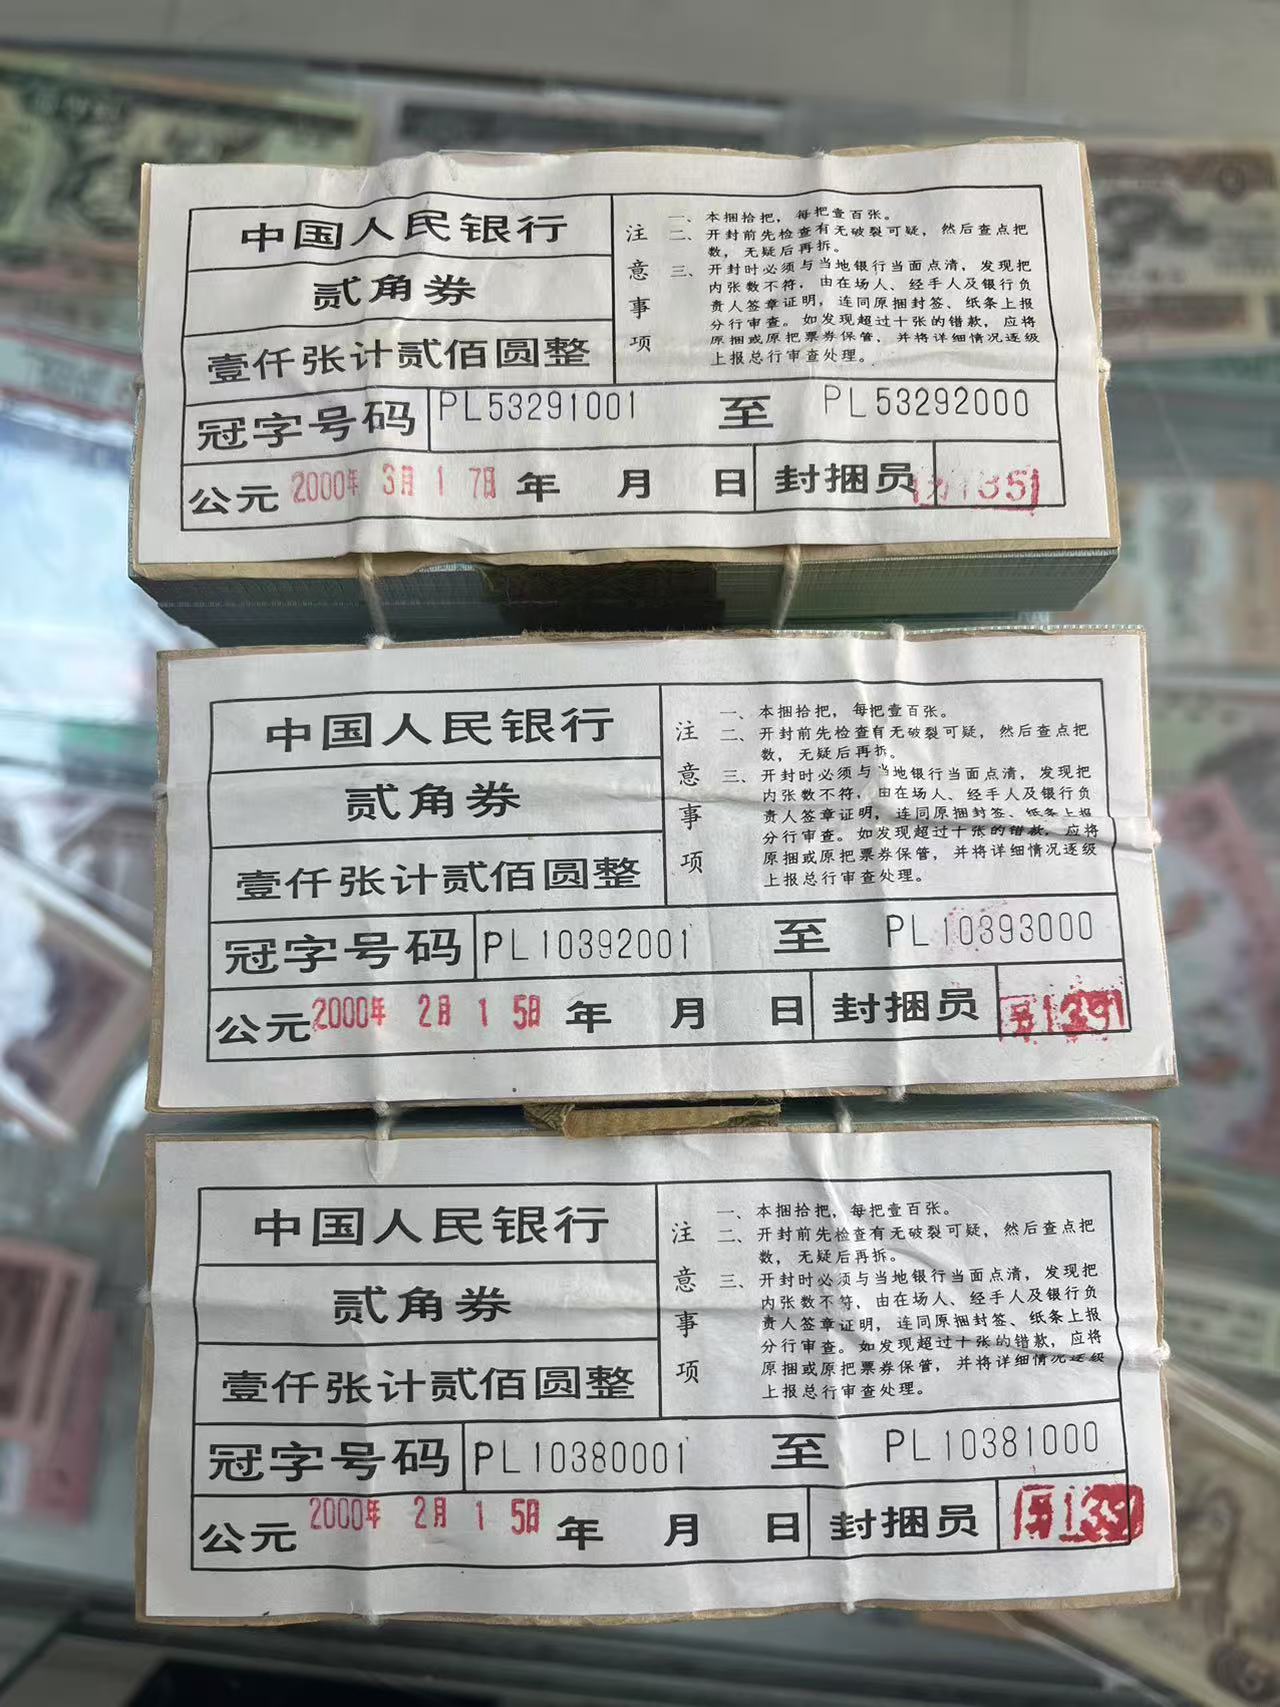 中国人民银行
贰角券
壹仟张计贰佰圆整
注意事项
一、本捆拾把，每把壹百张。
二、开封前先检查有无破裂可疑，然后查点把
数，无疑后再拆。
三、开封时必须与当地银行当面点清，发现把
内张数不符，由在场人、经手人及银行负
责人签章证明，连同原捆封签、纸条上报
分行审查。如发现超过十张的错款，应将
原捆或原把票券保管，并将详细情况逐级
上报总行审查处理。
冠字号码 PL53291001 至 PL53292000
公元 2000年 3月 17日 年 月 日 封捆员 135
中国人民银行
贰角券
壹仟张计贰佰圆整
注意事项
一、本捆拾把，每把壹百张。
二、开封前先检查有无破裂可疑，然后查点把
数，无疑后再拆。
三、开封时必须与当地银行当面点清，发现把
内张数不符，由在场人、经手人及银行负
责人签章证明，连同原捆封签、纸条上报
分行审查。如发现超过十张的错款，应将
原捆或原把票券保管，并将详细情况逐级
上报总行审查处理。
冠字号码 PL10392001 至 PL10393000
公元 2000年 2月 15日 年 月 日 封捆员 139
中国人民银行
贰角券
壹仟张计贰佰圆整
注意事项
一、本捆拾把，每把壹百张。
二、开封前先检查有无破裂可疑，然后查点把
数，无疑后再拆。
三、开封时必须与当地银行当面点清，发现把
内张数不符，由在场人、经手人及银行负
责人签章证明，连同原捆封签、纸条上报
分行审查。如发现超过十张的错款，应将
原捆或原把票券保管，并将详细情况逐级
上报总行审查处理。
冠字号码 PL10380001 至 PL10381000
公元 2000年 2月 15日 年 月 日 封捆员 139